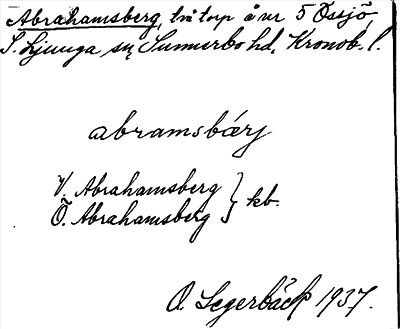 Abrahamsberg, två torp å nr 5 Össjö,
S. Ljunga sn, Sunnerbo hd, Kronob. l.
abramsbærj
V. Abrahamsberg } kb.
Ö. Abrahamsberg
O. Segerbäck 1937.